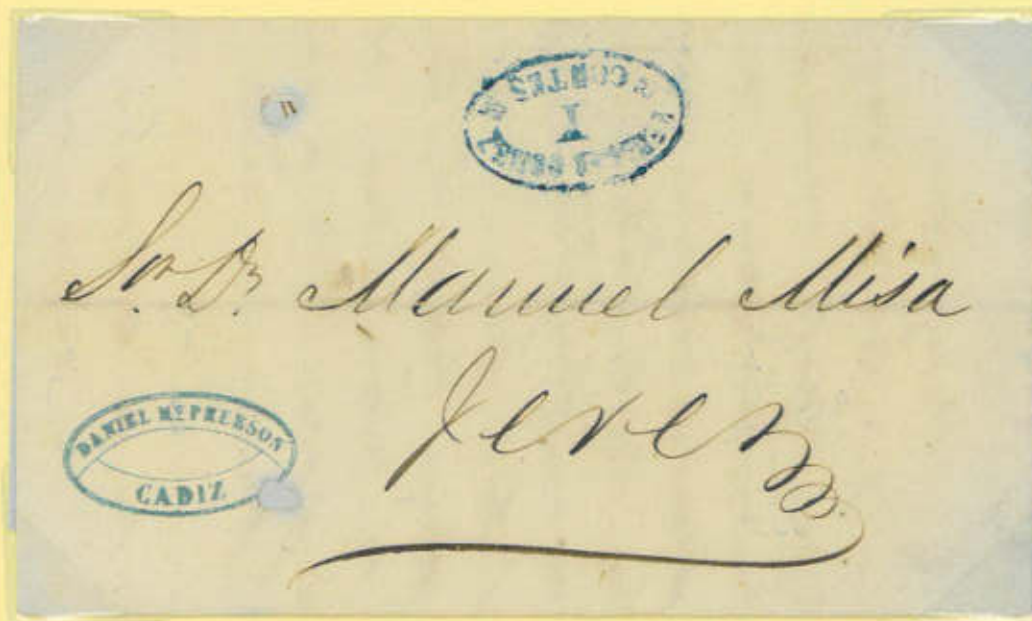 & CORTES &
I
Sor Dn Manuel Misa
Jerez
DANIEL McPHERSON
CADIZ